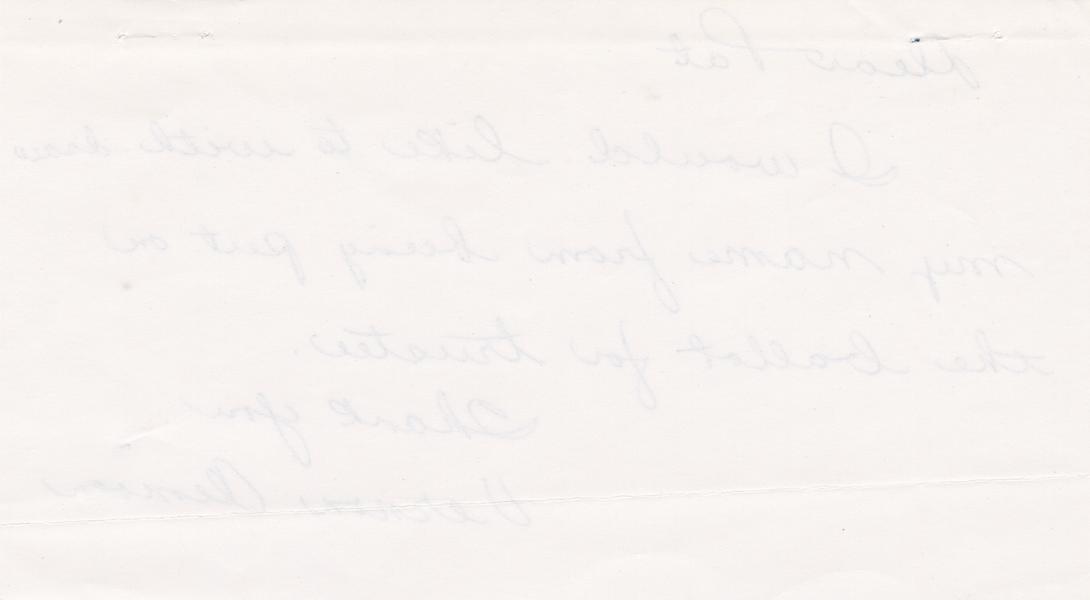 Dear Pat
I would like to with draw
my name from being put on
the ballot for trustee.
Thank you
Vernon